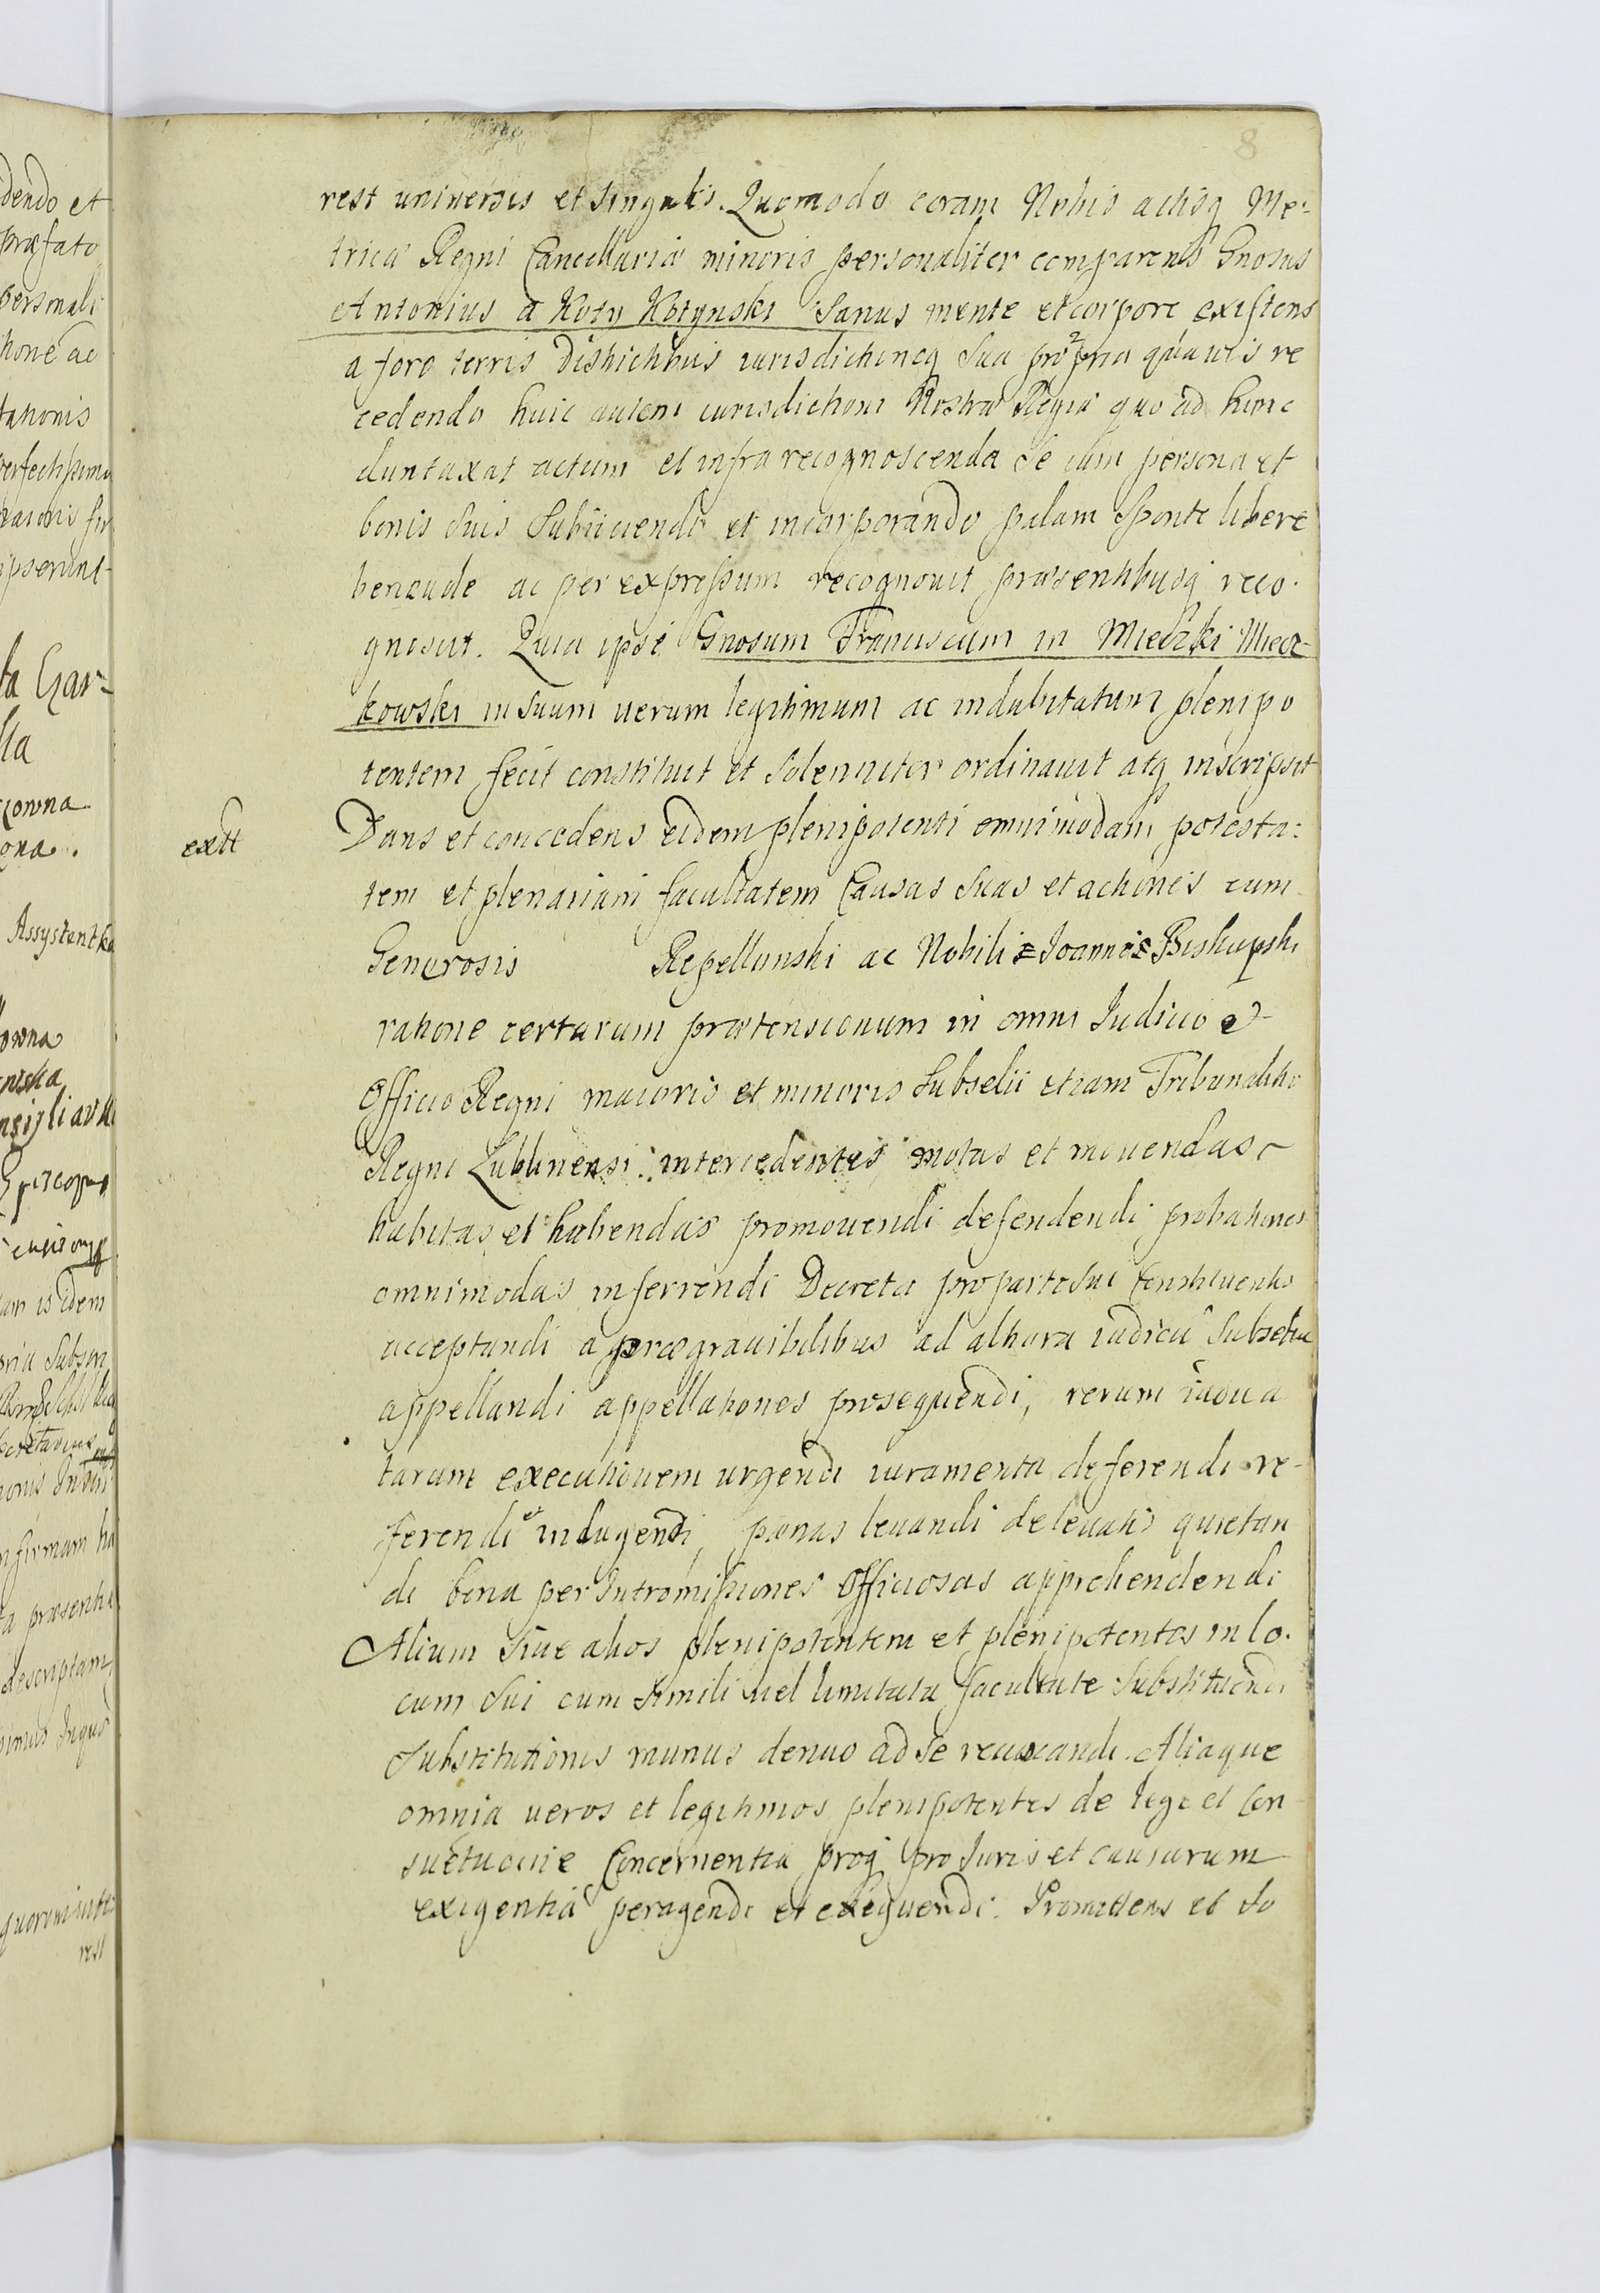 8
rest universis et singulis. Quomodo coram Nobis actisq Me-
trica Regni Cancellariæ minoris personaliter comparens Gnosus
Antonius a Koty Kotynski Sanus mente et corpore existens
a foro terris Districtibus iurisdictioneq sua propria quauis re
cedendo huic autem iurisdictioni Nostræ Regiæ quo ad hunc
duntaxat actum et infra recognoscenda se cum persona et
bonis suis Subiiciendo et incorporando palam Sponte libere
benevole ac per expressum recognouit præsentibusq reco-
gnoscit. Quia ipse Gnosum Franciscum in Mieczki Miecz-
kowski in suum uerum legitimum ac indubitatum plenipo
tentem fecit constituit et solenniter ordinauit atq inscripsit
extt
Dans et concedens eidem plenipotenti omnimodam potesta:
tem et plenariam facultatem Causas suas et actiones cum
Generosis Repellunski ac Nobili Joanne Biskupski
ratione certarum prætensionum in omni Judicio et
Officio Regni maioris et minoris Subselii etiam Tribunalitio
Regni Lublinensi intercedentes motas et mouendas
habitas et habendas promouendi defendendi probationes
omnimodas inferrendi Decreta pro parte sui Constituentis
acceptandi a prægrauibilibus ad altiora iudicii Subselia
appellandi appellationes prosequendi, rerum iudica
tarum executionem urgendi iuramenta deferendi re-
ferendi et indugendi, pœnas leuandi de leuatis quietan
di bona per Intromissiones Officiosas apprehendendi
Alium siue alios plenipotentem et plenipotentes in lo-
cum sui cum simili uel limitata facultate Substituendi
Substitutionis munus denuo ad se reuocandi. Aliaque
omnia ueros et legitimos plenipotentes de lege et Con
suetudine Concernentia proq pro Juris et causarum
exigentia peragendi et exequendi. Promittens et so